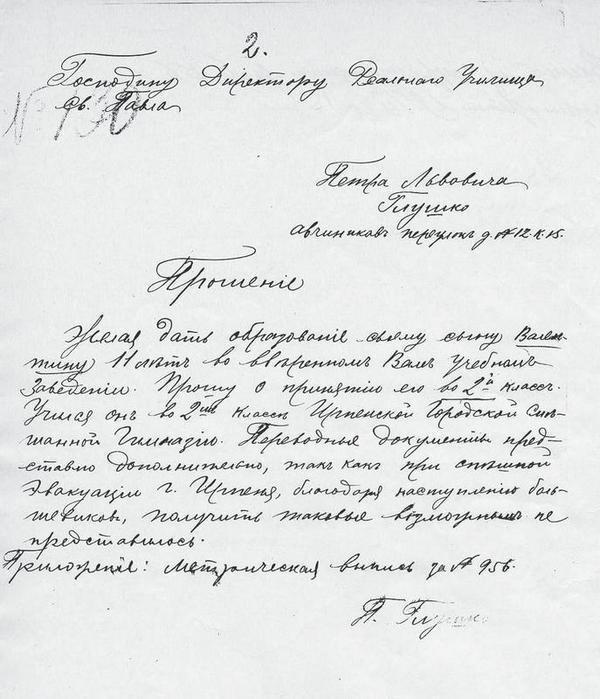 2.
Господину Директору Реальнаго Училища
Св. Павла
№ 130
Петра Львовича
Глушко
Авчиниковъ переулокъ д. № 12. к. 15.
Прошеніе
Желая дать образованіе своему сыну Вален-
тину 11 лѣтъ во ввѣренномъ Вамъ учебномъ
Заведеніи. Прошу о принятіи его во 2й классъ.
Учился онъ во 2мъ классѣ Ирпенской Городской Смѣ-
шанной Гимназіи. Переводные документы пред-
ставлю дополнительно, такъ какъ при спѣшной
Эвакуаціи г. Ирпеня, благодаря наступленію боль-
шевиковъ, получить таковые возможнымъ не
представилось.
Приложеніе: Метрическая выпись за № 956.
П. Глушко